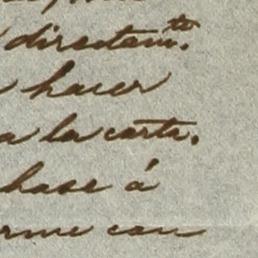 directam.te
hacer
a la carta.
hase á
rme con